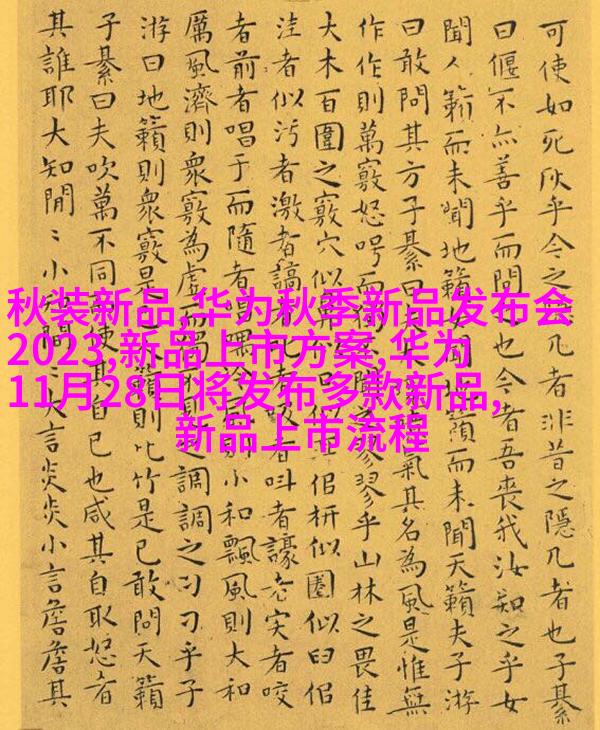 可使如死灰乎今之几者非昔之隱几者也子綦
曰偃不亦善乎而問也今者吾喪我汝知之乎女
聞人籟而未聞地籟聞地籟而未聞天籟夫子游
曰敢問其方子綦曰夫氣其名為風是惟無
作作則萬竅怒呺而獨翏翏乎山林之畏佳
大木百圍之竅穴似鼻似口佀枅似圈似臼佀
洼者似污者激者謞者者叫者譹者宎者咬
者前者唱于而隨者唱喁風則小和飄風則大和
厲風濟則眾竅為虛而獨調調之刁刁乎子
游曰地籟則眾竅是已籟則比竹是已敢問天籟
子綦曰夫吹萬不同使其自已也咸其自取怒者
其誰耶大知閒〻小知間〻大言炎炎小言詹詹其
秋装新品,华为秋季新品发布会
2023,新品上市方案,华为
11月28日将发布多款新品,
新品上市流程